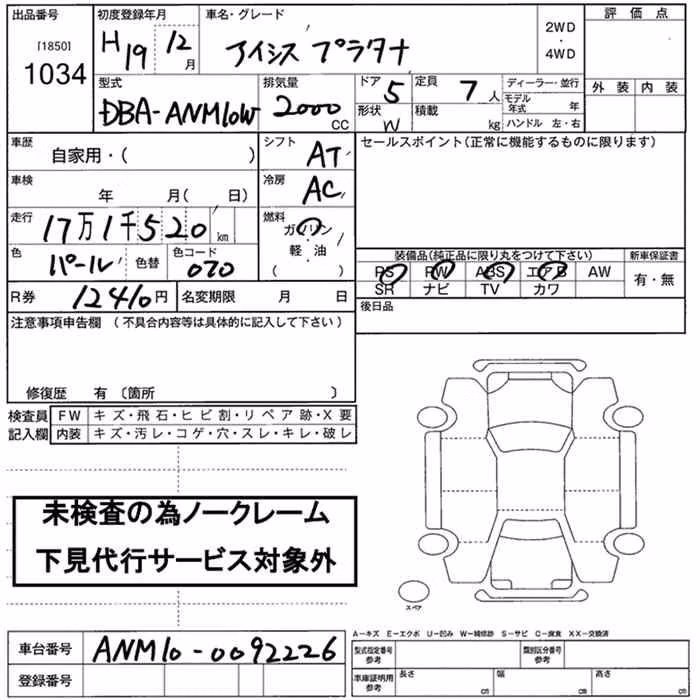 出品番号 初度登録年月 車名・グレード 評価点
[1850] H19 12月 アイシス プラタナ 2WD・4WD
1034 外装 内装
型式 排気量 ドア 5 定員 7人 ディーラー・並行
DBA-ANM10W 2000CC 形状 W 積載 kg モデル年式 年
ハンドル 左・右
車歴 シフト セールスポイント(正常に機能するものに限ります)
自家用・( ) AT
車検 年 月( 日) 冷房 AC
走行 17万1千520km 燃料 ガソリン・軽・油 ( )
色 パール 色替 色コード 070
装備品(純正品に限り丸をつけて下さい) 新車保証書
PS PW ABS エアB AW 有・無
SR ナビ TV カワ
R券 12410円 名変期限 月 日 後日品
注意事項申告欄 (不具合内容等は具体的に記入して下さい)
修復歴 有 〔箇所 〕
検査員 FW キズ・飛石・ヒビ割・リペア跡・X要
記入欄 内装 キズ・汚レ・コゲ・穴・スレ・キレ・破レ
未検査の為ノークレーム
下見代行サービス対象外
スペア
A−キズ E−エクボ U−凹み W−補修跡 S−サビ C−腐食 XX−交換済
車台番号 ANM10-0092226 型式指定番号 参考 類別区分番号 参考
登録番号 車庫証明用 参考 長さ cm 幅 cm 高さ cm